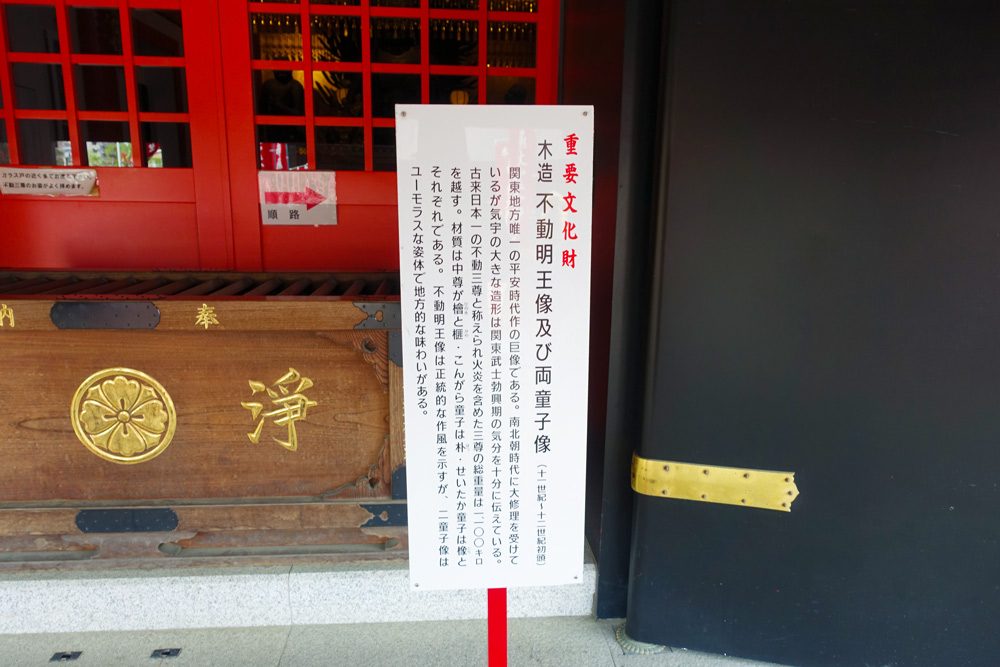 重要文化財
木造 不動明王像及び両童子像(十一世紀〜十二世紀初頭)
関東地方唯一の平安時代作の巨像である。南北朝時代に大修理を受けて
いるが気宇の大きな造形は関東武士勃興期の気分を十分に伝えている。
古来日本一の不動三尊と称えられ火炎を含めた三尊の総重量は一、一〇〇キロ
を越す。材質は中尊が檜と榧・こんがら童子は朴・せいたか童子は橡と
それぞれである。不動明王像は正統的な作風を示すが、二童子像は
ユーモラスな姿体で地方的な味わいがある。
順路
奉
納
浄